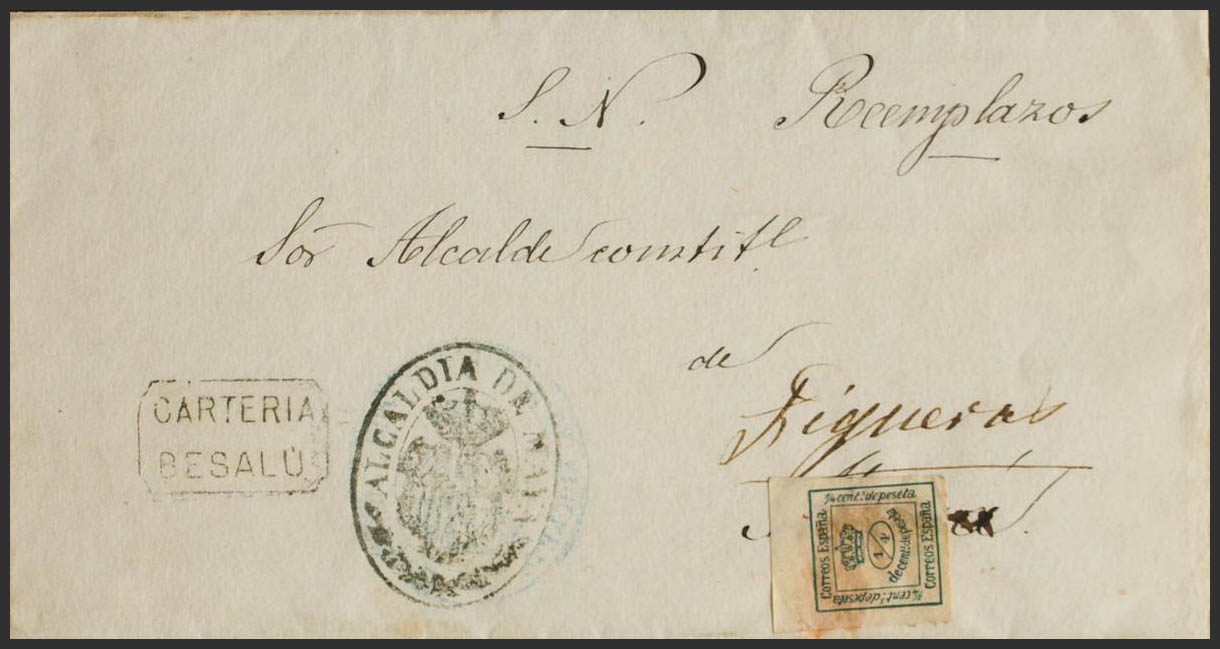 S. N. Reemplazos
Sor Alcalde constitl
de
Figueras
CARTERIA
BESALÚ
ALCALDIA DE
¼ cent.s de peseta
Correos España
1/4
de cent. de peseta
Correos España
¼ cent.s de peseta